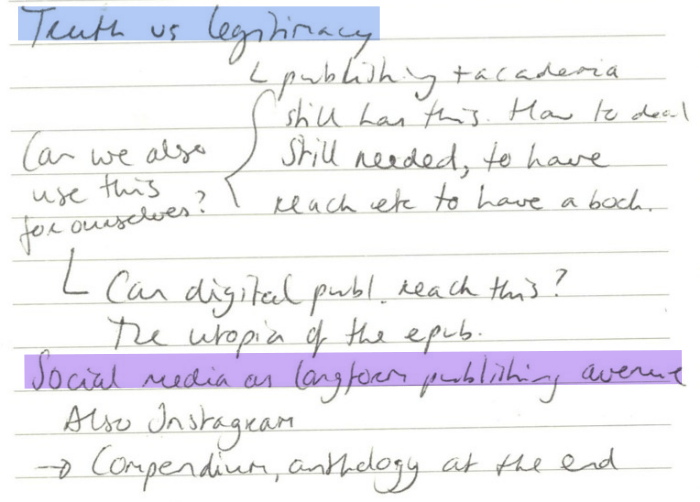 Truth vs legitimacy
publishing + academia
still has this. How to deal
still needed, to have
reach etc to have a book.
Can we also
use this
for ourselves?
Can digital publ. reach this?
The utopia of the epub.
Social media as longform publishing avenue
Also Instagram
→ Compendium, anthology at the end